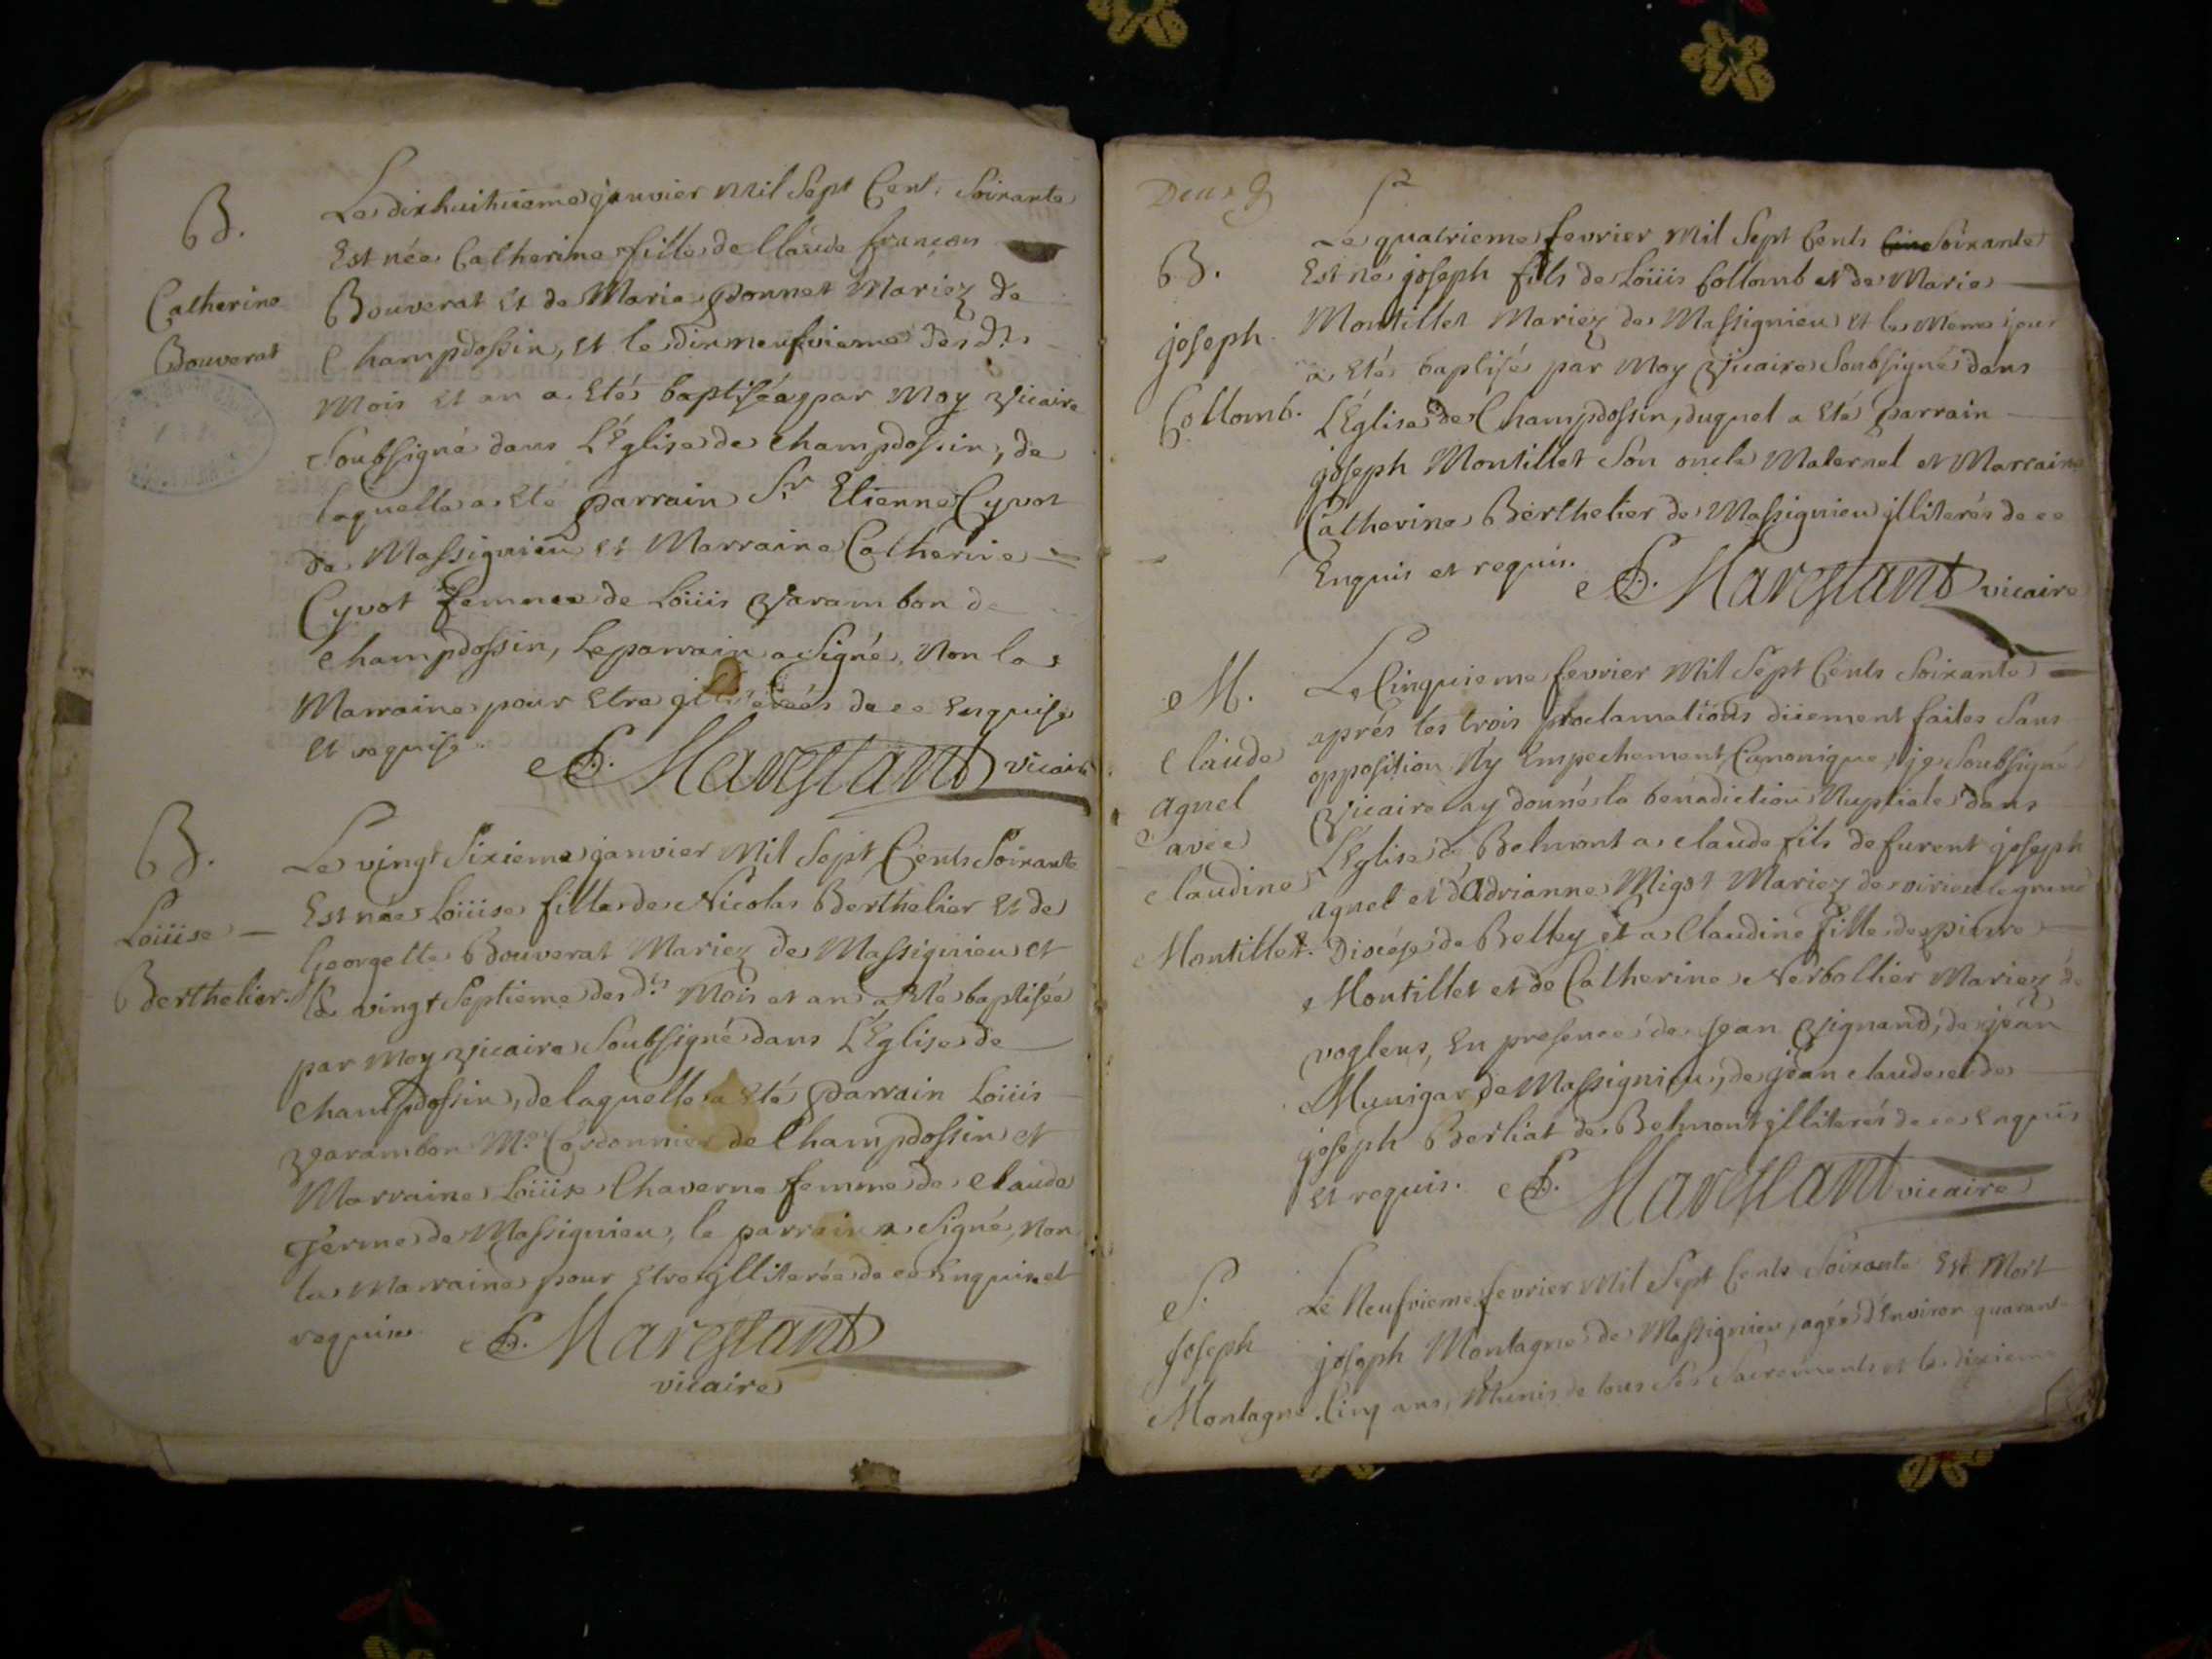 B.
Catherine
Bouverat
Le dixhuitieme janvier mil Sept Cent Soixante
Est née Catherine fille de Claude françois
Bouverat Et de Marie Bonnet Mariez de
Champdossin, et le dixneufvieme des d.ts
Mois et an a Eté baptisée par Moy Vicaire
Soubsigné dans L'Eglise de Champdossin, de
laquelle a Eté parrain Sr Etienne Cyvot
de Massignieu et Marraine Catherine
Cyvot femme de Loüis Varambon de
Champdossin, Le parrain a Signé, Non la
Marraine pour Etre de ce Enquise
et requise. Marestant vicaire
B.
Loüise
Berthelier.
Le vingt Sixieme janvier Mil Sept Cents Soixante
Est née Loüise fille de Nicolas Berthelier Et de
Georgette Bouverat Mariez de Massignieu et
le vingt Septieme des d.ts Mois et an a Eté baptisée
par Moy vicaire Soubsigné dans L'Eglise de
Champdossin, de laquelle a Eté parrain Loüis
Varambon M.e Cordonnier de Champdossin et
Marraine Loüise Chaverne femme de Claude
Jerme de Massignieu, le parrain a Signé, Non
la Marraine pour Etre jlliterée de ce Enquise et
requise Marestant
vicaire
Deux
B.
joseph
Collomb.
Le quatrieme fevrier Mil Sept Cents Soixante
Est né joseph fils de Loüis Collomb et de Marie
Montillet Mariez de Massignieu et le Meme jour
a Eté baptisé par Moy Vicaire Soubsigné dans
L'Eglise de Champdossin, duquel a Eté parrain
joseph Montillet Son oncle Maternel et Marraine
Catherine Berthelier de Massignieu jlliterés de ce
Enquis et requis. Marestant vicaire
M.
Claude
agnel
avec
Claudine
Montillet.
Le Cinquieme fevrier Mil Sept Cents Soixante
aprés les trois proclamations düement faites Sans
opposition Ny Empechement Canonique, je Soubsigné
Vicaire ay donné la bénédiction Nuptiale dans
L'Eglise de Belmont a Claude fils de furent joseph
agnel et d'Adrianne Migot Mariez de virieu le grand
Diocése de Belley et a Claudine fille de pierre
Montillet et de Catherine Nerbollier Mariez de
voglens, En presence de jean Vignand, de jean
Munigar de Massignieu, de jean Claude et de
joseph Berliat de Belmont jlliterés de ce Enquis
et requis. Marestant vicaire
S.
joseph
Montagne.
Le Neufvieme fevrier Mil Sept Cents Soixante Est Mort
joseph Montagne de Massignieu, agée d'Environ quarante
Cinq ans, Munis de tous Ses Sacrements et le dixieme